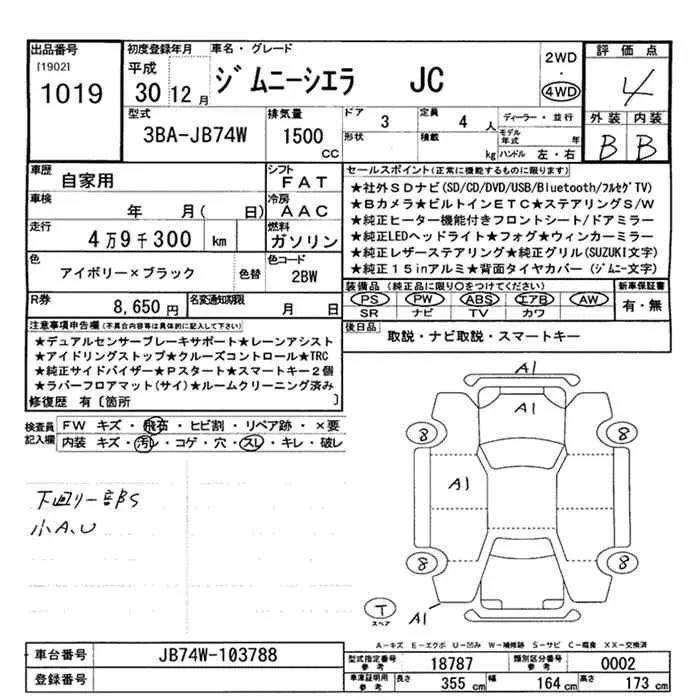 出品番号
[1902]
1019
初度登録年月
平成
30 12 月
車名・グレード
ジムニーシエラ JC
2WD
・
4WD
評価点
4
外装 内装
B B
型式
3BA-JB74W
排気量
1500
CC
ドア
3
形状
定員
4 人
積載
kg
ディーラー・並行
モデル
年式 年
ハンドル 左・右
車歴
自家用
シフト
FAT
車検
年 月( 日)
冷房
AAC
走行
4万9千300 km
燃料
ガソリン
色
アイボリー×ブラック
色替
色コード
2BW
R券
8,650 円
名変通知期限
月 日
セールスポイント(正常に機能するものに限ります)
★社外SDナビ(SD/CD/DVD/USB/Bluetooth/フルセグTV)
★Bカメラ★ビルトインETC★ステアリングS/W
★純正ヒーター機能付きフロントシート/ドアミラー
★純正LEDヘッドライト★フォグ★ウィンカーミラー
★純正レザーステアリング★純正グリル(SUZUKI文字)
★純正15inアルミ★背面タイヤカバー(ジムニー文字)
装備品(純正品に限り○をつけてください)
PS PW ABS エアB AW
SR ナビ TV カワ
新車保証書
有・無
後日品
取説・ナビ取説・スマートキー
注意事項申告欄(不具合内容等は具体的に記入して下さい)
★デュアルセンサーブレーキサポート★レーンアシスト
★アイドリングストップ★クルーズコントロール★TRC
★純正サイドバイザー★Pスタート★スマートキー2個
★ラバーフロアマット(サイ)★ルームクリーニング済み
修復歴 有〔箇所 〕
検査員
記入欄
FW キズ・飛石・ヒビ割・リペア跡・×要
内装 キズ・汚レ・コゲ・穴・スレ・キレ・破レ
下廻り一部S
小A、U
A1
A1
8 8
A1
8 8
T
スペア
A1
A-キズ E-エクボ U-凹み W-補修跡 S-サビ C-腐食 XX-交換済
車台番号
JB74W-103788
登録番号
型式指定番号
参考
18787
類別区分番号
参考
0002
車庫証明用
参考
長さ
355 cm
幅
164 cm
高さ
173 cm